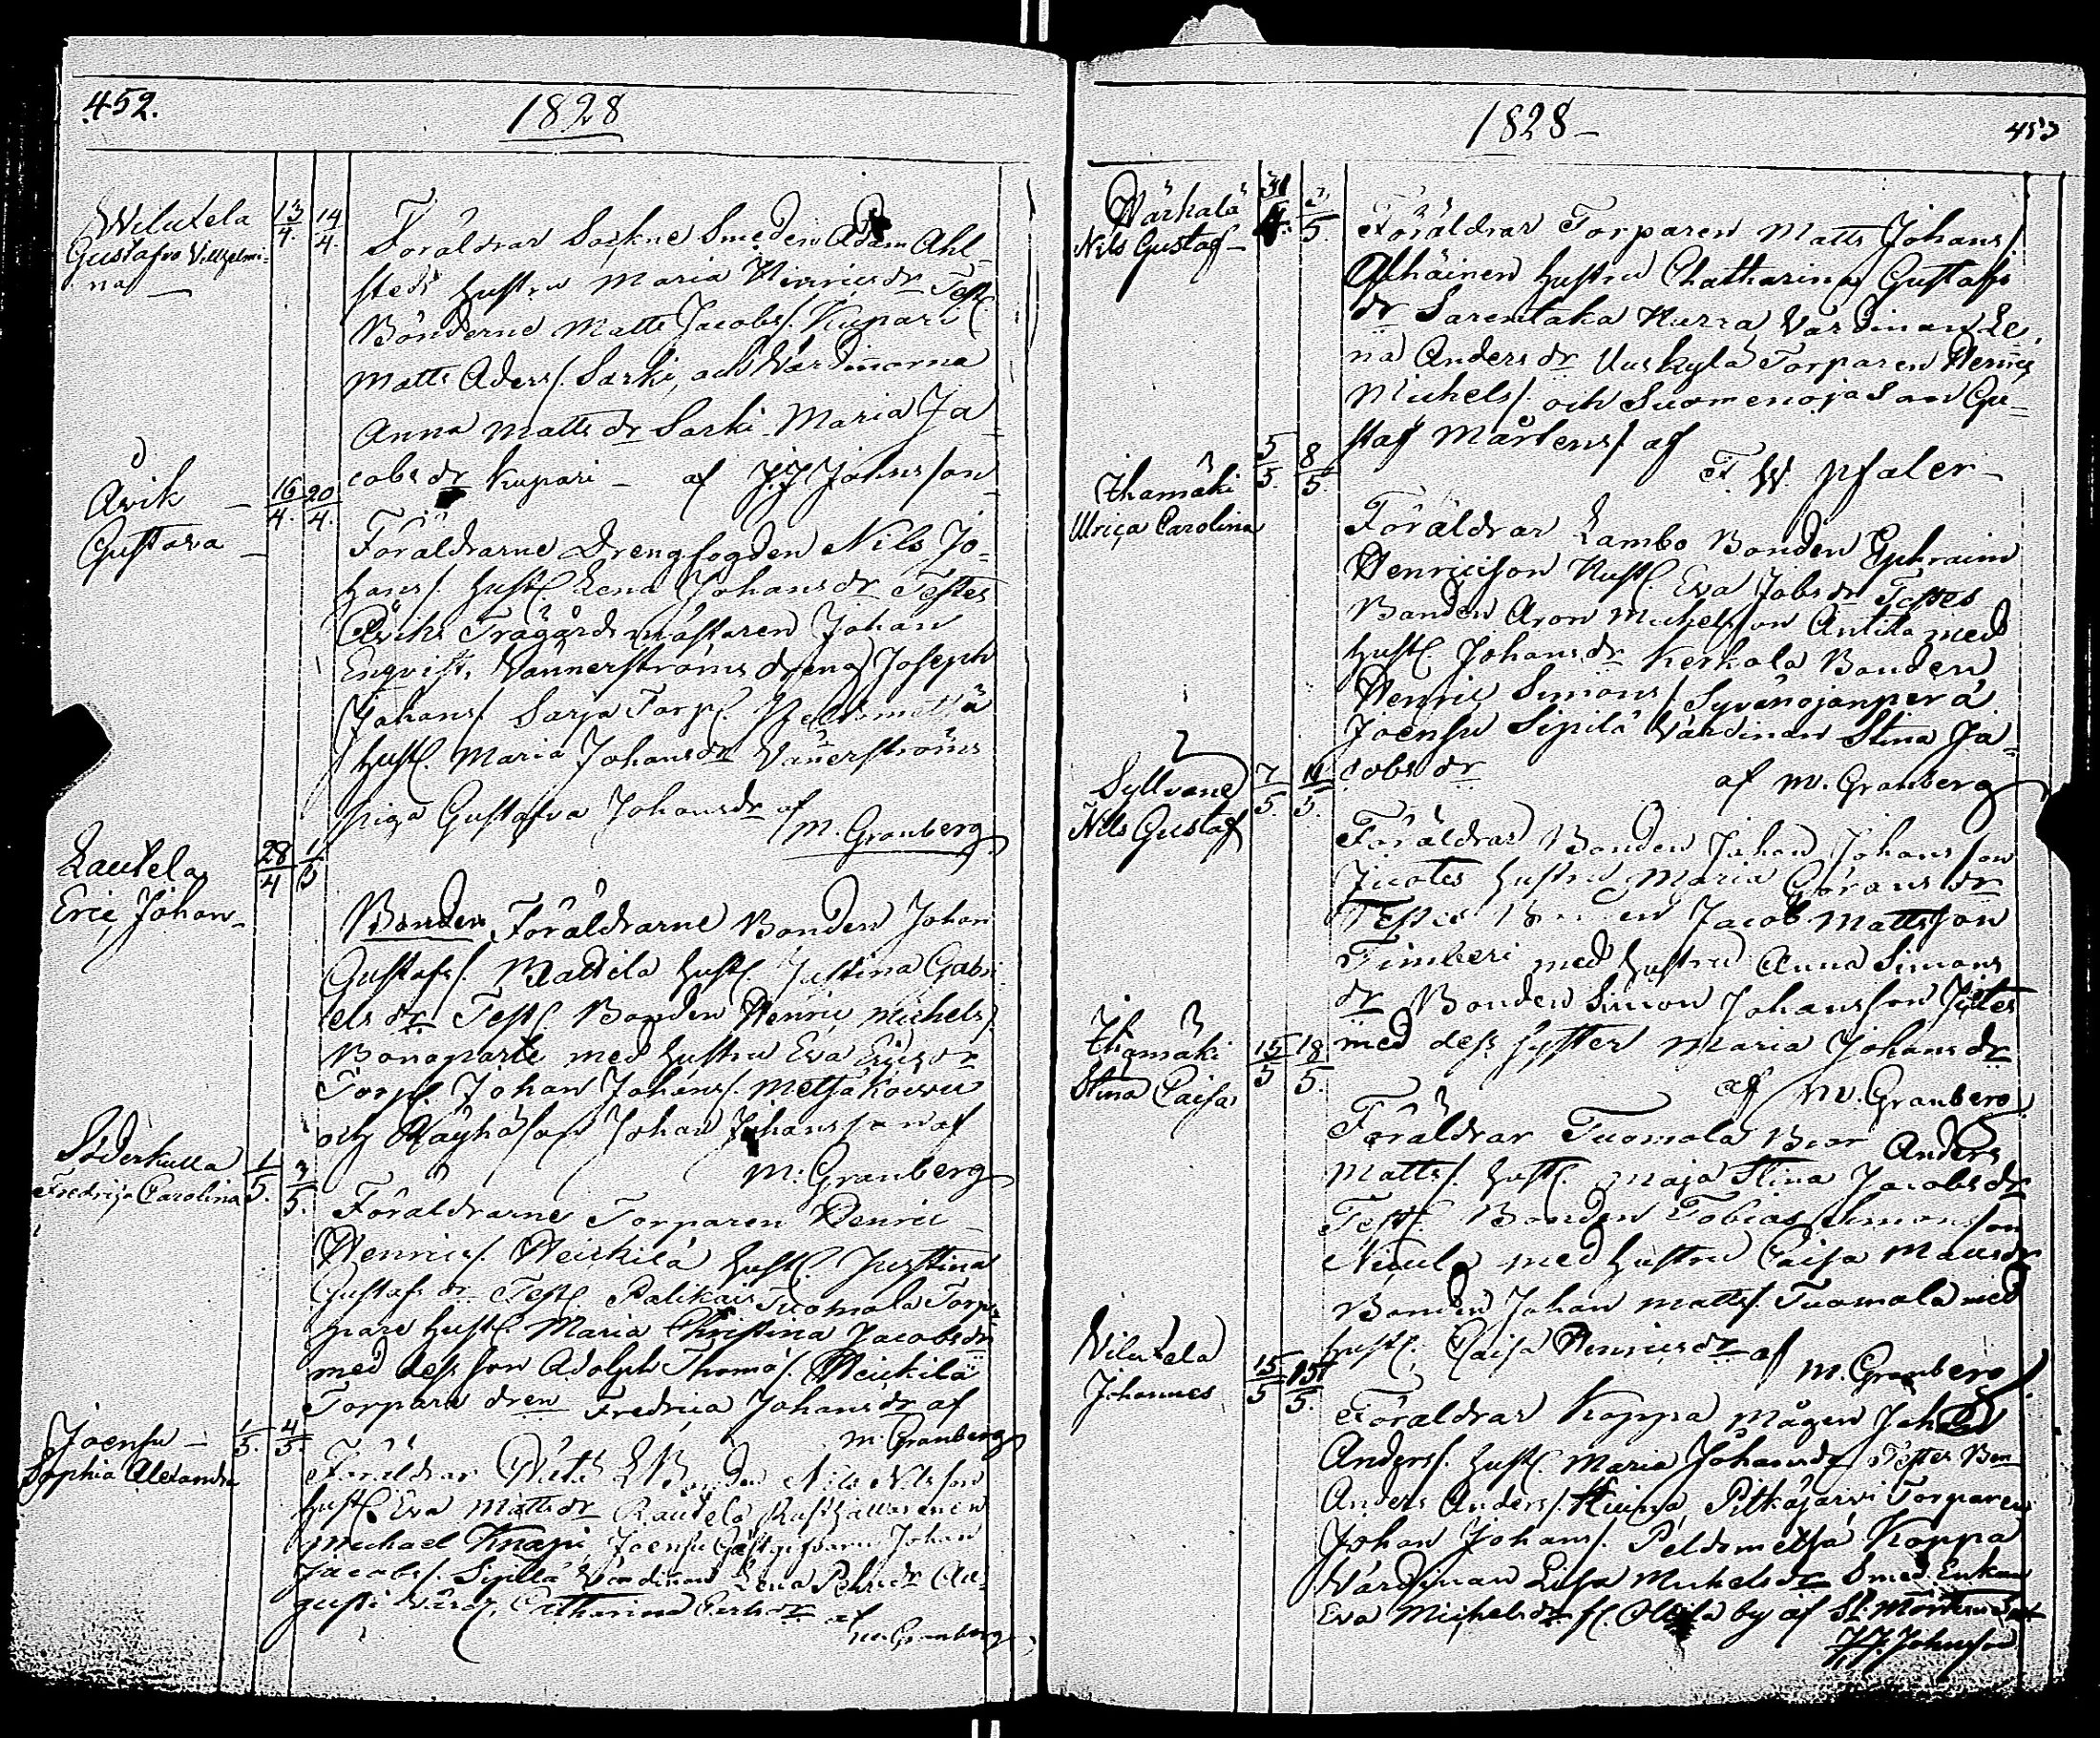 452.
1828
Wilukela 13/4. 14/4.
Gustafva Villhelmi-
na
Föräldrar Sockne Smeden Adam Ahl-
stedt hustru Maria Henricsdr Test.
Bönderne Matts Jacobs/. Kupari
Matts Aders/. Sarki, och Värdinnorna
Anna Mattsdr Sarki Maria Ja-
cobsdr Kupari - af J.J Johnsson
Avik 16/4. 20/4.
Gustava
Föräldrarne Drengfogden Nils Jo-
hans/. hust. Lena Johansdr Testes
Åviks Trägårdsmästaren Johan
Enqvist, Vännerströms dreng Joseph
Johans/. Sarja Torp.
hust. Maria Johansdr Vännerströms
piga Gustafva Johansdr af
M. Granberg
Lautela 28/4 1/5
Eric Johan
Bonden Föräldrarne Bonden Johan
Gustafs/. Mattila hust. Justina Gabri-
elsdr Test. Bonden Henric Michels/.
Bonoparte med hustru Eva Ericsdr
Torp. Johan Johans/. Metsäkouvu
och Johan Johansson af
M. Granberg
Söderkulla 1/5. 3/5.
Fredrica Carolina
Föräldrarne Torparen Henric
Henrics/. Heickilä hust. Justina
Gustafsdr Test. Palikais Tuomola Torp-
pare hust. Maria Christina Jacobsdr
med dess son Adolph Thomas/. Heickilä
Torpare dren Fredrica Johansdr af
M. Granberg
Joensu 1/5. 4/5.
Sophia Alexandra
Föräldrar Bonden Nils Nilsson
hust. Eva Mattsdr Rautela Rusthållaren
Michael Knapi Joensu Gästgifvaren Johan
Jacobs/. Sipilä Värdinnan Lena
gusti Catharina af
M. Granberg
1828
453
Wärhalä 31/4. 3/5.
Nils Gustaf
Föräldrar Torparen Matts Johans/.
hustru Chatharina Gustafs
dr Sarentaka Hurra Värdinnan Le
na Andersdr Uuskylä Torparen Henric
Michels/. och Suomenoja Son Gu-
staf Mårtens/. af
F. W. Pfaler
Ihamäki 5/5. 8/5.
Ulrica Carolina
Föräldrar Lambo Bonden Ephraim
Henricsson Hust. Eva Jobsdr Testes
Bonden Aron Michelsson Antila med
hust. Johansdr Kerkola Bonden
Henric Simons/. Syvänojanperä
Joensu Sipilä Värdinan Stina Ja-
cobsdr af M. Granberg
Syllvane 7/5. 11/5.
Nils Gustaf
Föräldrar Bonden Johan Johansson
hustru Maria Göransdr
Testes Jacob Mattsson
Timberi med hustru Anna Simons
dr Bonden Simon Johansson
med dess syster Maria Johansdr
af M. Granberg
Ihamäki 15/5 18/5.
Stina Caisa
Föräldrar Tuomola Bror Anders
Matts/. hust. Maja Stina Jacobsdr
Test. Bonden Tobias Simonsson
Nicula med hustru Caisa
Bonden Johan Matts/. Tuomola med
hust. Caisa Henricsdr af
M. Granberg
Vilukela 15/5 15/5.
Johannes
Föräldrar Koppa Mågen Johan
Anders/. hust. Maria Johansdr Testes Bon
Anders Anders/. Pitkäjärvi Torparen
Johan Johans/. Peldometsä Koppa
Värdinnan Lisa Michelsdr Smed Enkan
Eva Michelsdr by af St. Mårtens
J.J. Johnsson